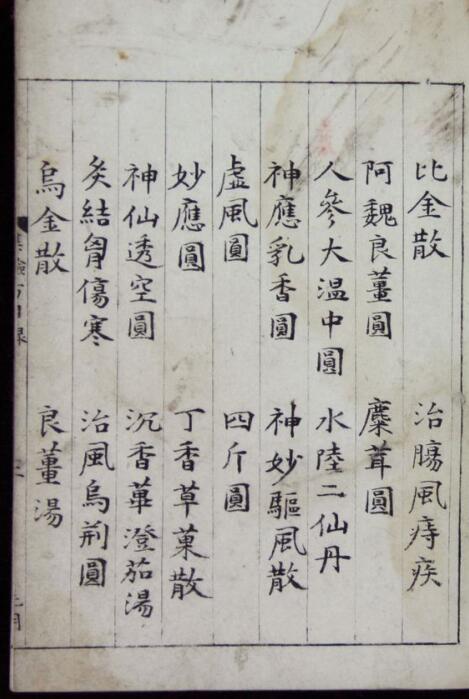 比金散 治腸風痔疾
阿魏良薑圓 麋茸圓
人參大温中圓 水陸二仙丹
神應乳香圓 神妙驅風散
虛風圓 四斤圓
妙應圓 丁香草菓散
神仙透空圓 沉香蓽澄茄湯
灸結胷傷寒 治風烏荆圓
烏金散 良薑湯